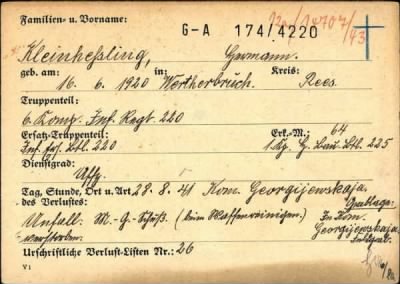 Familien- u. Vorname:
G-A 174/4220
Kleinheßling, Hermann.
geb. am: in: Kreis:
16. 6. 1920 Wertherbruch. Rees
Truppenteil:
6. Komp. Inf. Regt. 220
Ersatz-Truppenteil: Erk.-M.: 64
Inf. Btl. 220 1. Kp. G. Bau-Btl. 225
Dienstgrad:
Tag, Stunde, Ort u. Art 28. 8. 41 Kom. Georgijewskaja.
des Verlustes: Grablage:
Unfall: M-G-Schuß (beim Waffenreinigen.) In Kom.
verstorben. Georgijewskaja
Urschriftliche Verlust-Listen Nr.: 26
V 1